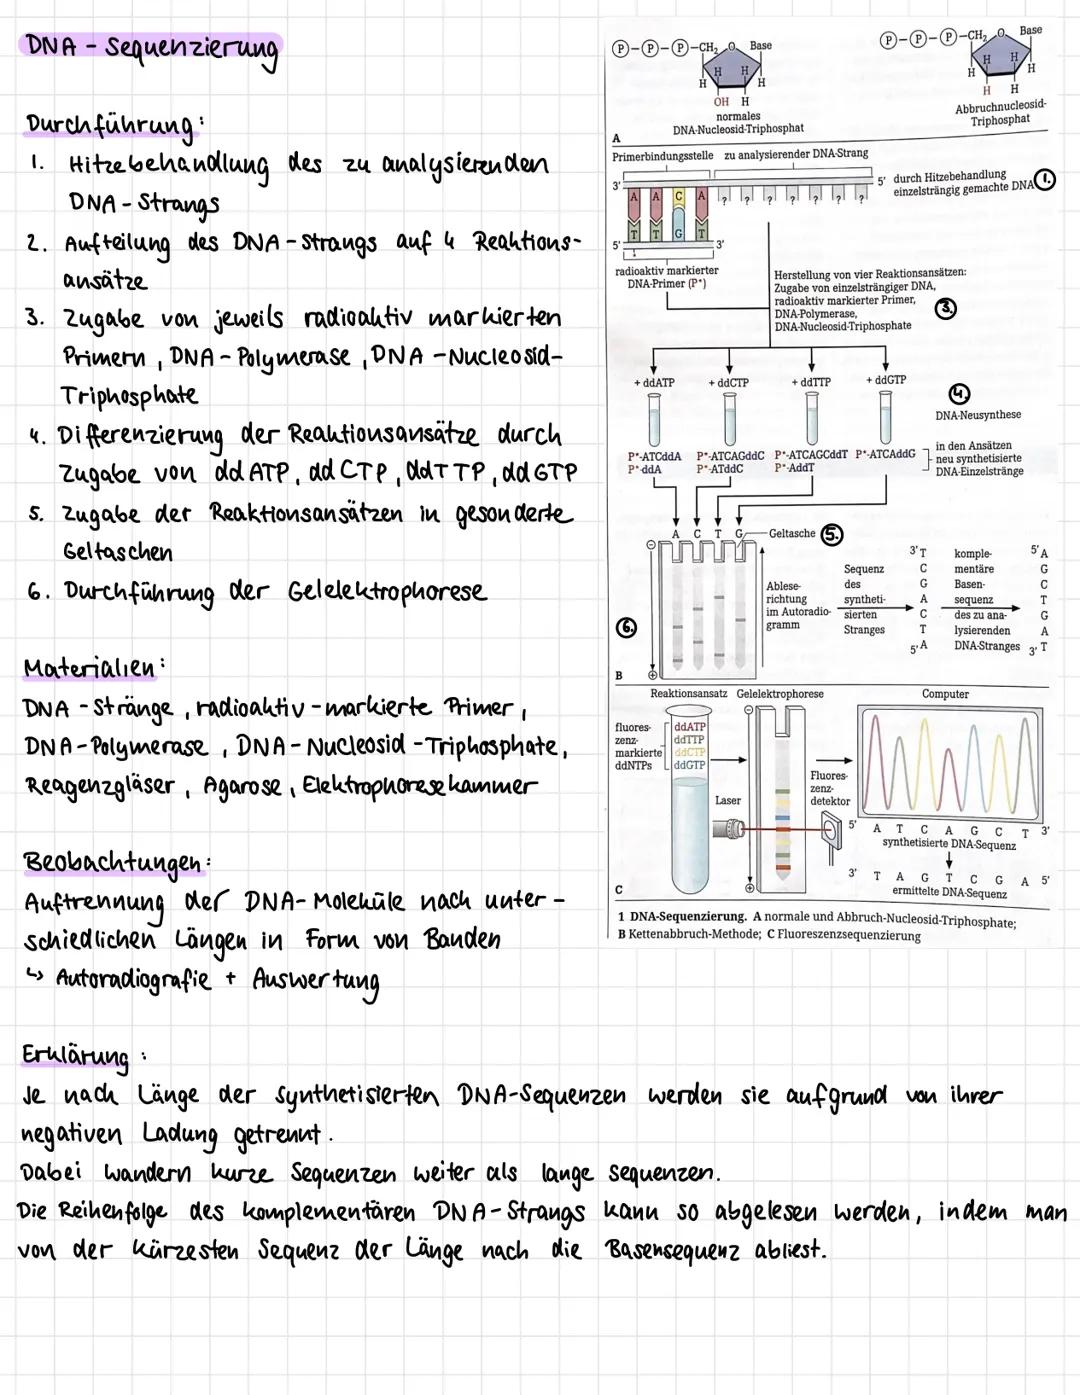 DNA - Sequenzierung
Durchführung:
1. Hitzebehandlung des zu analysierenden
DNA - Strangs
2. Aufteilung des DNA - Strangs auf 4 Reaktions-
ansätze
3. Zugabe von jeweils radioaktiv markierten
Primern, DNA - Polymerase, DNA - Nucleosid-
Triphosphate
4. Differenzierung der Reaktionsansätze durch
Zugabe von ddATP, ddCTP, ddTTP, ddGTP
5. Zugabe der Reaktionsansätzen in gesonderte
Geltaschen
6. Durchführung der Gelelektrophorese
Materialien:
DNA - Stränge, radioaktiv - markierte Primer,
DNA - Polymerase, DNA - Nucleosid - Triphosphate,
Reagenzgläser, Agarose, Elektrophoresekammer
Beobachtungen:
Auftrennung der DNA- Moleküle nach unter -
schiedlichen Längen in Form von Banden
↳ Autoradiografie + Auswertung
P-P-P-CH₂ O Base
H H H H
OH H
normales
DNA-Nucleosid-Triphosphat
P-P-P-CH₂ O Base
H H H H
H H
Abbruchnucleosid-
Triphosphat
A
Primerbindungsstelle zu analysierender DNA-Strang
3' 5'
A A C A ? ? ? ? ? ? ?
T T G T
5' 3'
durch Hitzebehandlung
einzelsträngig gemachte DNA
1.
radioaktiv markierter
DNA-Primer (P*)
Herstellung von vier Reaktionsansätzen:
Zugabe von einzelsträngiger DNA,
radioaktiv markierter Primer,
DNA-Polymerase,
DNA-Nucleosid-Triphosphate
3.
+ ddATP + ddCTP + ddTTP + ddGTP
4.
DNA-Neusynthese
P*-ATCddA P*-ATCAGddC P*-ATCAGCddT P*-ATCAddG
P*-ddA P*-ATddC P*-AddT
in den Ansätzen
neu synthetisierte
DNA-Einzelstränge
A C T G Geltasche 5.
⊖
Ablese-
richtung
im Autoradio-
gramm
Sequenz
des
syntheti-
sierten
Stranges
3' T
C
G
A
C
T
5' A
komple-
mentäre
Basen-
sequenz
des zu ana-
lysierenden
DNA-Stranges
5' A
G
C
T
G
A
3' T
6.
⊕
B
Reaktionsansatz Gelelektrophorese Computer
fluores-
zenz-
markierte
ddNTPs
ddATP
ddTTP
ddCTP
ddGTP
⊖
Laser
Fluores-
zenz-
detektor
⊕
5' A T C A G C T 3'
synthetisierte DNA-Sequenz
3' T A G T C G A 5'
ermittelte DNA-Sequenz
C
1 DNA-Sequenzierung. A normale und Abbruch-Nucleosid-Triphosphate;
B Kettenabbruch-Methode; C Fluoreszenzsequenzierung
Erklärung:
Je nach Länge der synthetisierten DNA-Sequenzen werden sie aufgrund von ihrer
negativen Ladung getrennt.
Dabei wandern kurze Sequenzen weiter als lange Sequenzen.
Die Reihenfolge des komplementären DNA - Strangs kann so abgelesen werden, indem man
von der kürzesten Sequenz der Länge nach die Basensequenz abliest.